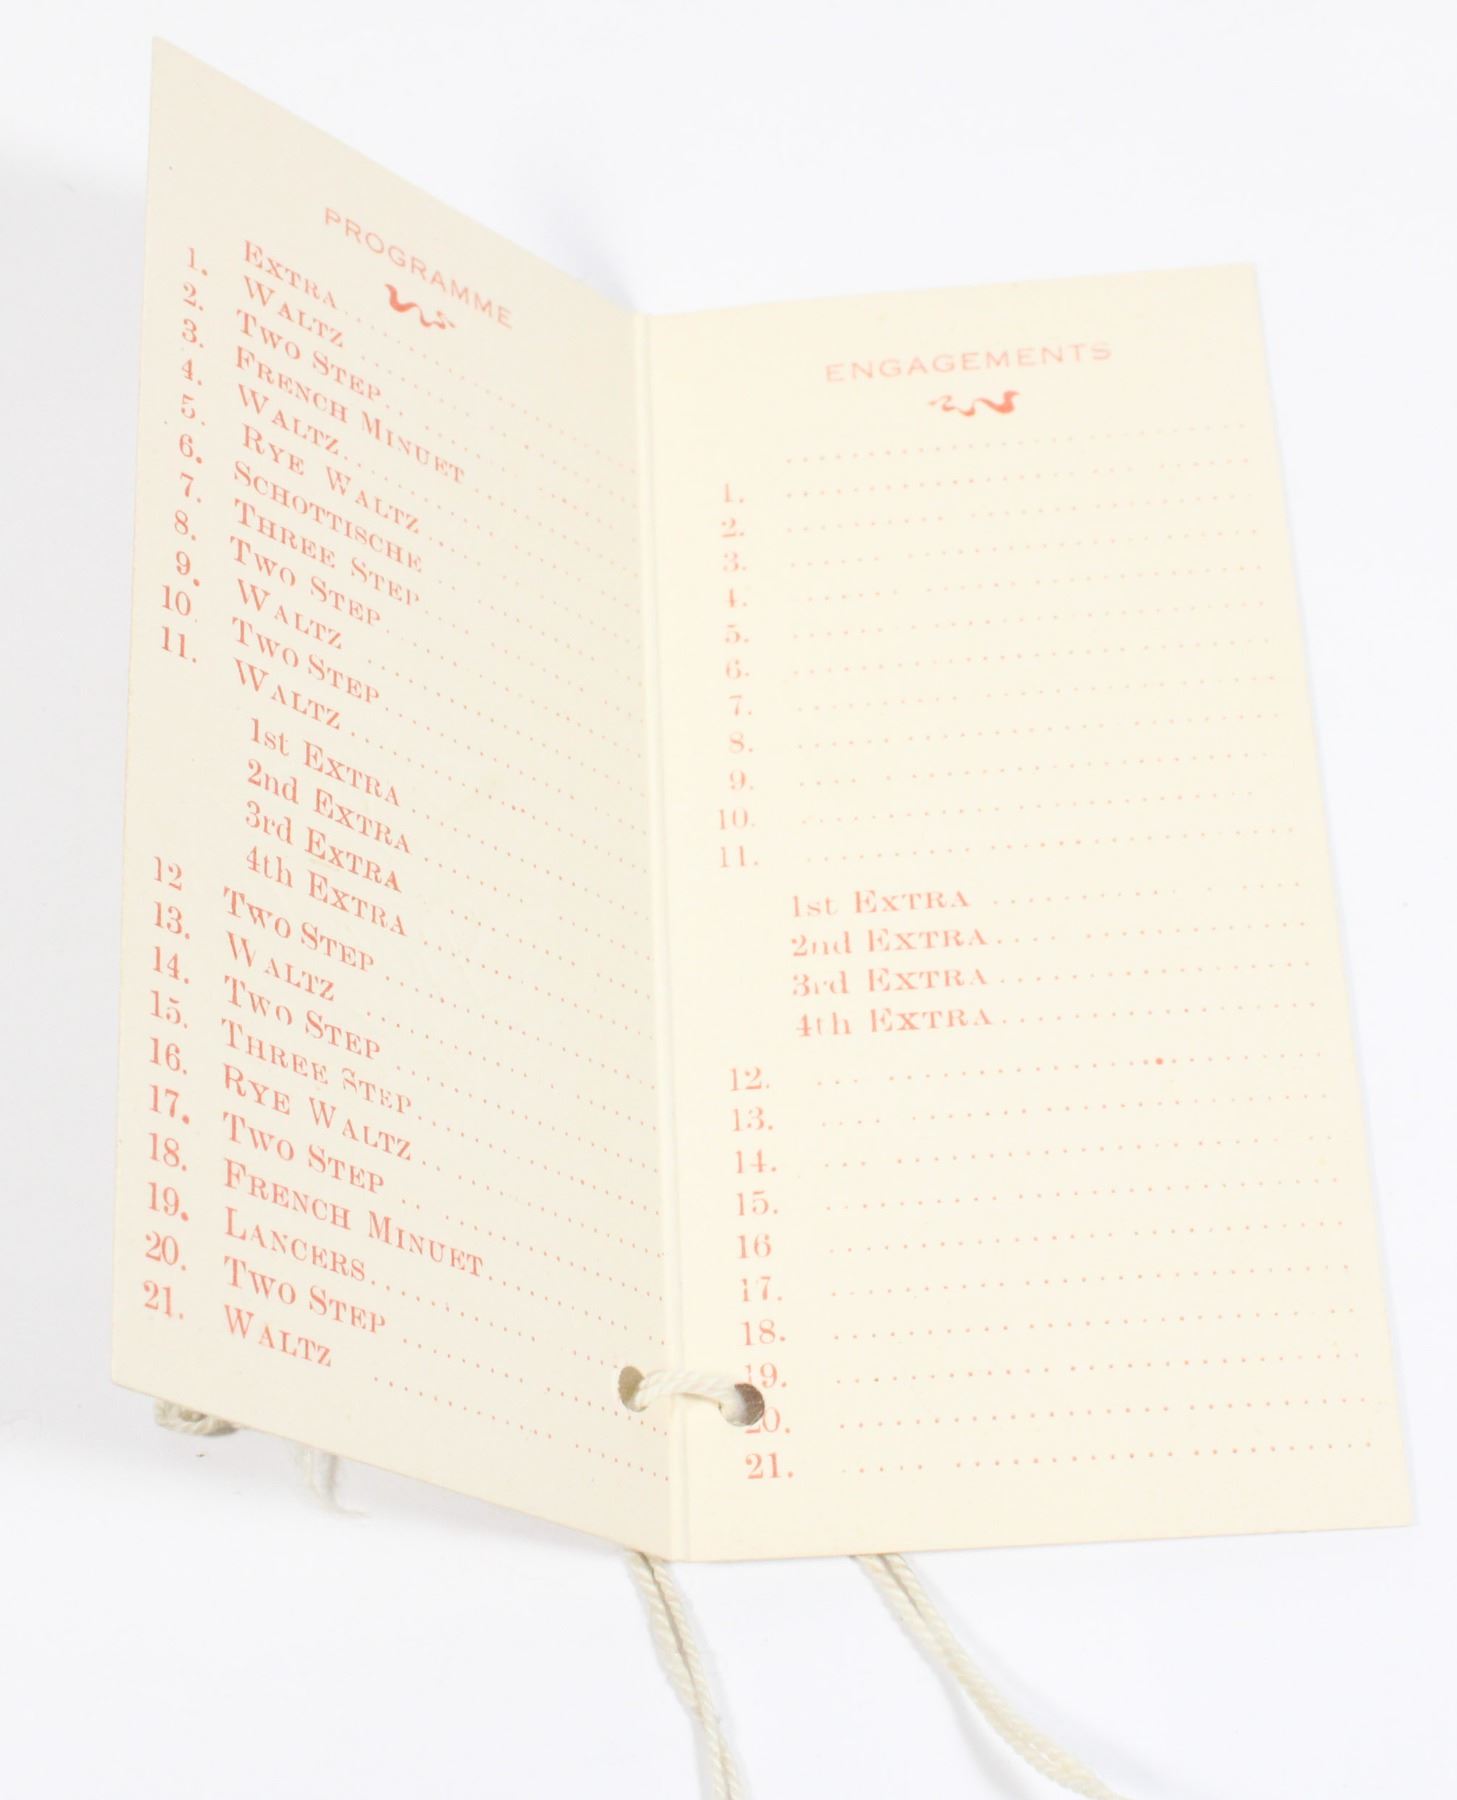 PROGRAMME
EXTRA
1. WALTZ
2. TWO STEP
3. FRENCH MINUET
4. WALTZ
5. RYE WALTZ
6. SCHOTTISCHE
7. THREE STEP
8. TWO STEP
9. WALTZ
10. TWO STEP
11. WALTZ
1st EXTRA
2nd EXTRA
3rd EXTRA
4th EXTRA
12 TWO STEP
13. WALTZ
14. TWO STEP
15. THREE STEP
16. RYE WALTZ
17. TWO STEP
18. FRENCH MINUET
19. LANCERS
20. TWO STEP
21. WALTZ
ENGAGEMENTS
1.
2.
3.
4.
5.
6.
7.
8.
9.
10.
11.
1st EXTRA
2nd EXTRA
3rd EXTRA
4th EXTRA
12.
13.
14.
15.
16
17.
18.
19.
20.
21.